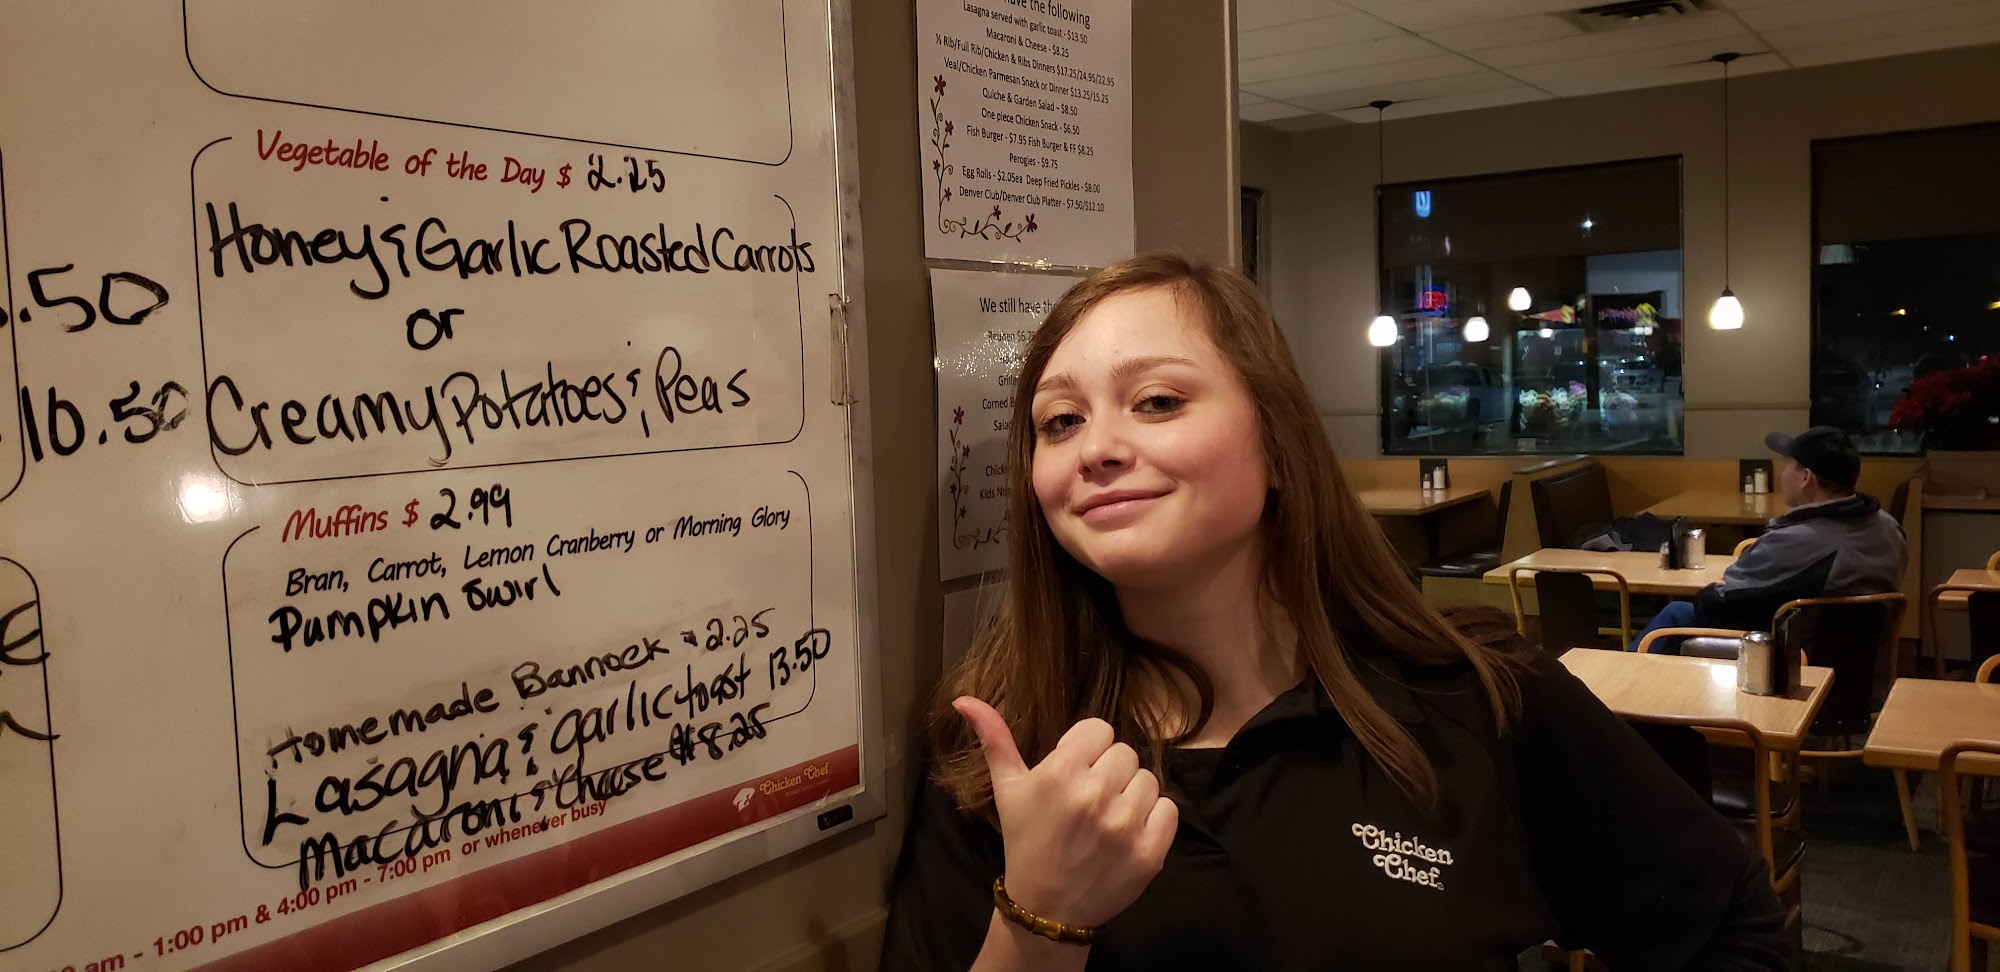 .50
10.50
Vegetable of the Day $ 2.25
Honey & Garlic Roasted Carrots
or
Creamy Potatoes & Peas
Muffins $ 2.99
Bran, Carrot, Lemon Cranberry or Morning Glory
Pumpkin Swirl
Homemade Bannock 2.25
Lasagna & garlic toast 13.50
Macaroni & Cheese $8.25
Chicken Chef
am - 1:00 pm & 4:00 pm - 7:00 pm or whenever busy
have the following
Lasagna served with garlic toast - $13.50
Macaroni & Cheese - $8.25
½ Rib/Full Rib/Chicken & Ribs Dinners $17.25/24.95/22.95
Veal/Chicken Parmesan Snack or Dinner $13.25/15.25
Quiche & Garden Salad – $8.50
One piece Chicken Snack - $6.50
Fish Burger - $7.95 Fish Burger & FF $8.25
Perogies - $9.75
Egg Rolls - $2.05ea Deep Fried Pickles - $8.00
Denver Club/Denver Club Platter - $7.50/$12.10
We still have the
Reuben
Corned
Kids
Chicken
Chef